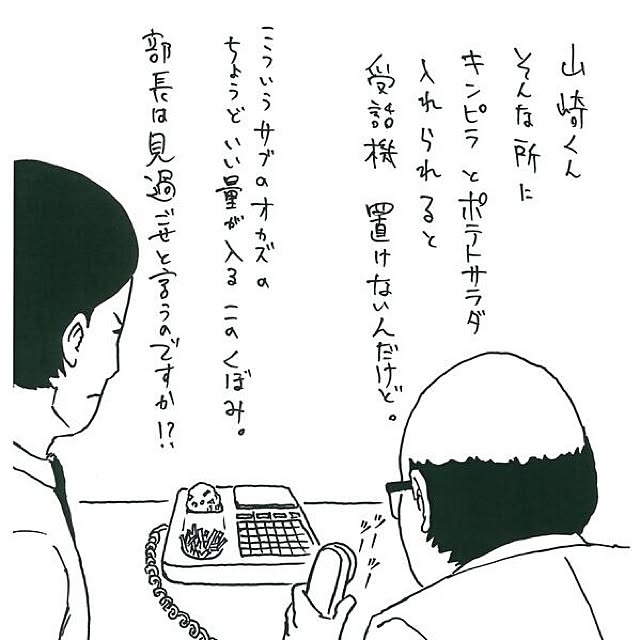 山崎くん
そんな所に
キンピラとポテトサラダ
入れられると
受話機 置けないんだけど。
こういうサブのオカズの
ちょうどいい量が入るこのくぼみ。
部長は見過ごせと言うのですか!?